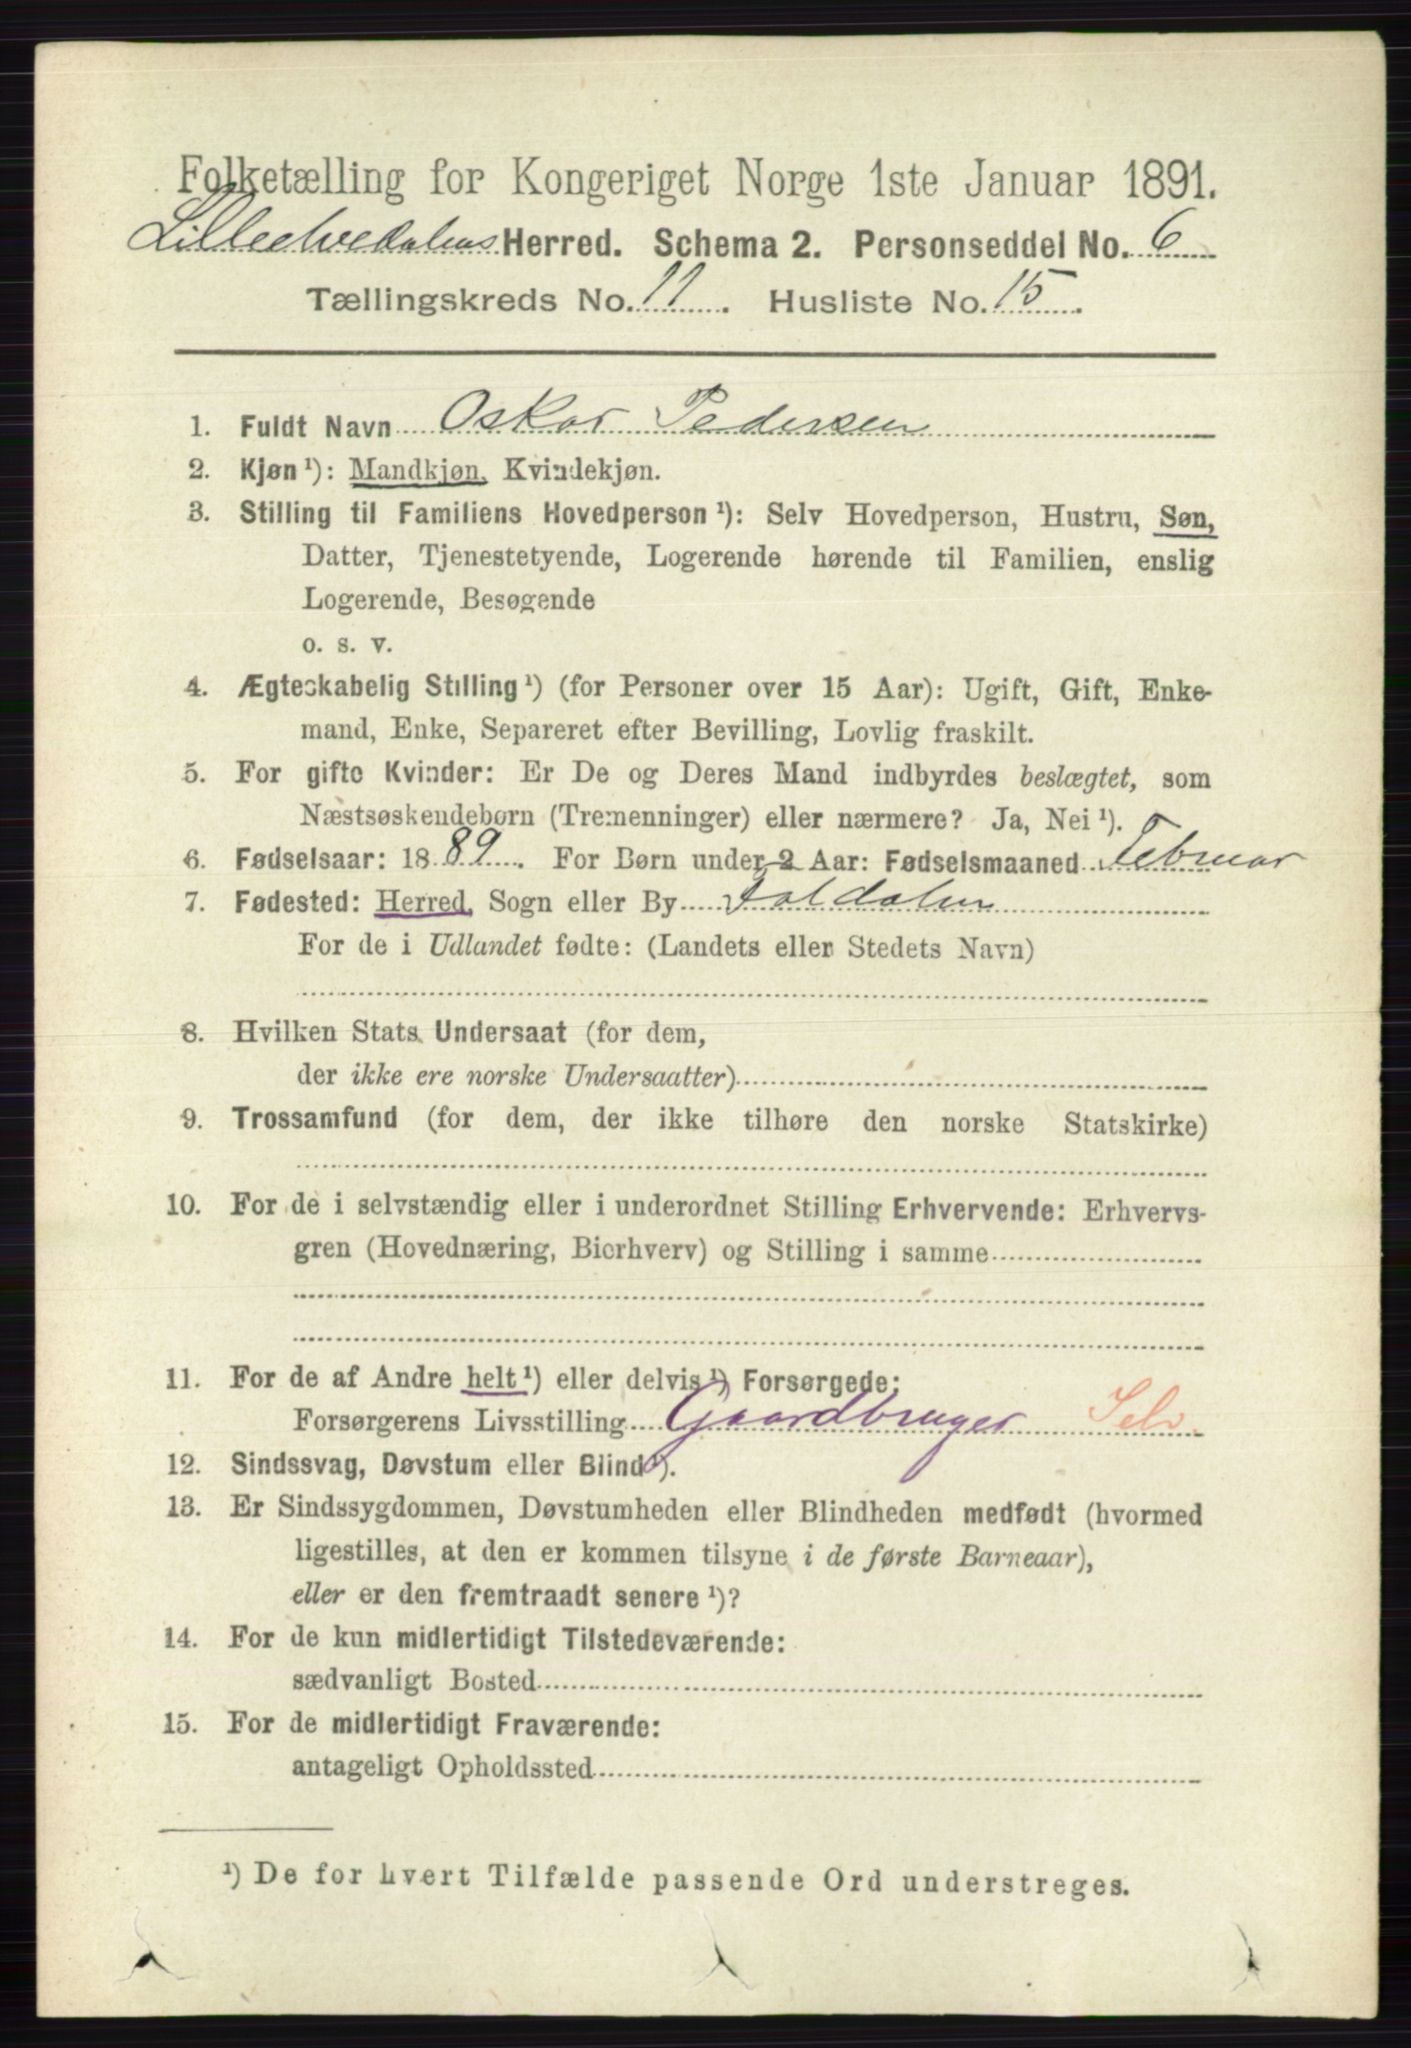 Folketælling for Kongeriget Norge 1ste Januar 1891.
Lilleelvedalens Herred. Schema 2. Personseddel No. 6
Tællingskreds No. 11. Husliste No. 15.
1. Fuldt Navn Oskar Pedersen
2. Kjøn ¹): Mandkjøn, Kvindekjøn.
3. Stilling til Familiens Hovedperson ¹): Selv Hovedperson, Hustru, Søn,
Datter, Tjenestetyende, Logerende hørende til Familien, enslig
Logerende, Besøgende
o. s. v.
4. Ægteskabelig Stilling ¹) (for Personer over 15 Aar): Ugift, Gift, Enke-
mand, Enke, Separeret efter Bevilling, Lovlig fraskilt.
5. For gifte Kvinder: Er De og Deres Mand indbyrdes beslægtet, som
Næstsøskendebørn (Tremenninger) eller nærmere? Ja, Nei ¹).
6. Fødselsaar: 1889. For Børn under 2 Aar: Fødselsmaaned Februar
7. Fødested: Herred, Sogn eller By Foldalen
For de i Udlandet fødte: (Landets eller Stedets Navn)
8. Hvilken Stats Undersaat (for dem,
der ikke ere norske Undersaatter)
9. Trossamfund (for dem, der ikke tilhøre den norske Statskirke)
10. For de i selvstændig eller i underordnet Stilling Erhvervende: Erhvervs-
gren (Hovednæring, Bierhverv) og Stilling i samme
11. For de af Andre helt ¹) eller delvis ¹) Forsørgede:
Forsørgerens Livsstilling Gaardbruger Selv.
12. Sindssvag, Døvstum eller Blind ¹).
13. Er Sindssygdommen, Døvstumheden eller Blindheden medfødt (hvormed
ligestilles, at den er kommen tilsyne i de første Barneaar),
eller er den fremtraadt senere ¹)?
14. For de kun midlertidigt Tilstedeværende:
sædvanligt Bosted
15. For de midlertidigt Fraværende:
antageligt Opholdssted
¹) De for hvert Tilfælde passende Ord understreges.